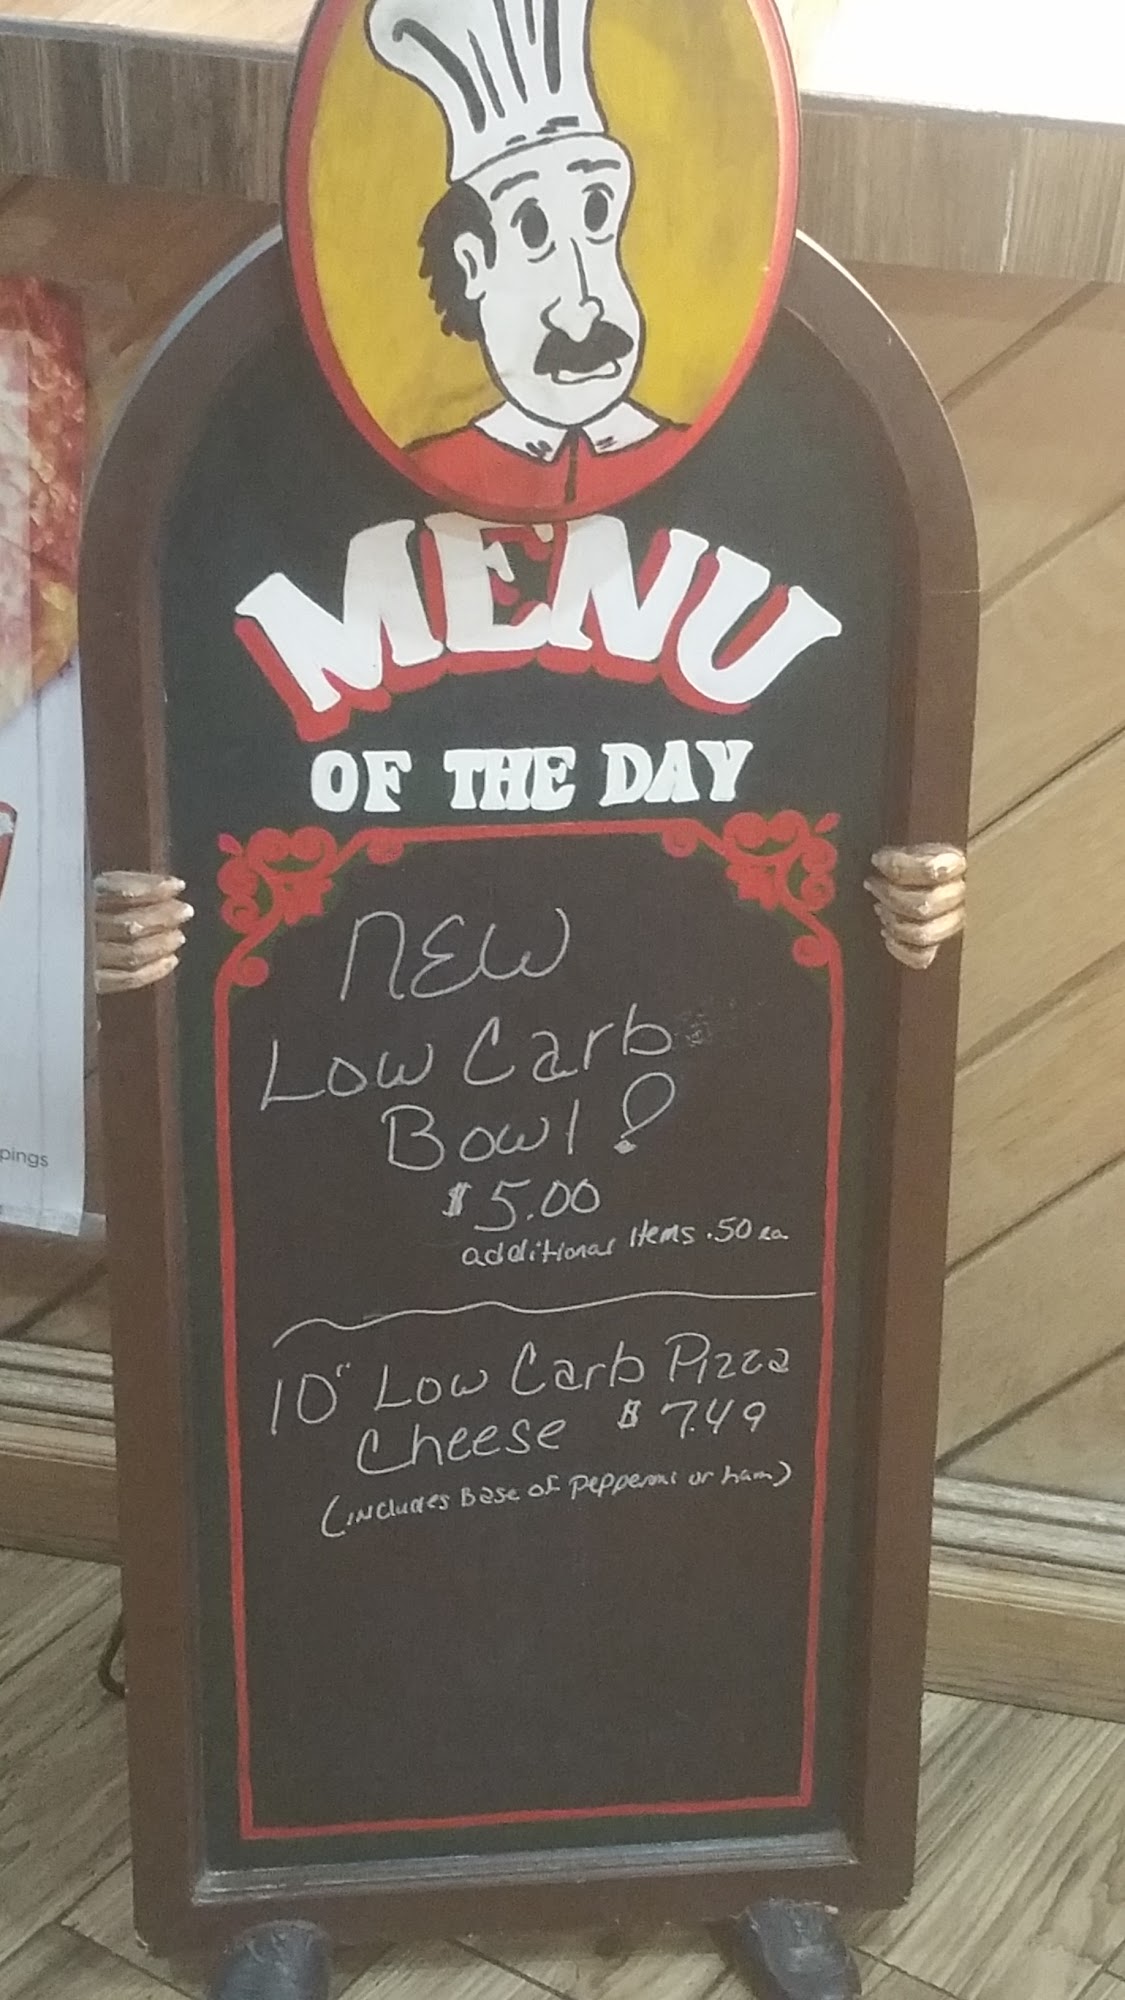 MENU
OF THE DAY
NEW
Low Carb
Bowl!
$5.00
additional Items .50 ea
10" Low Carb Pizza
Cheese $7.49
(includes Base of pepperoni or ham)
pings